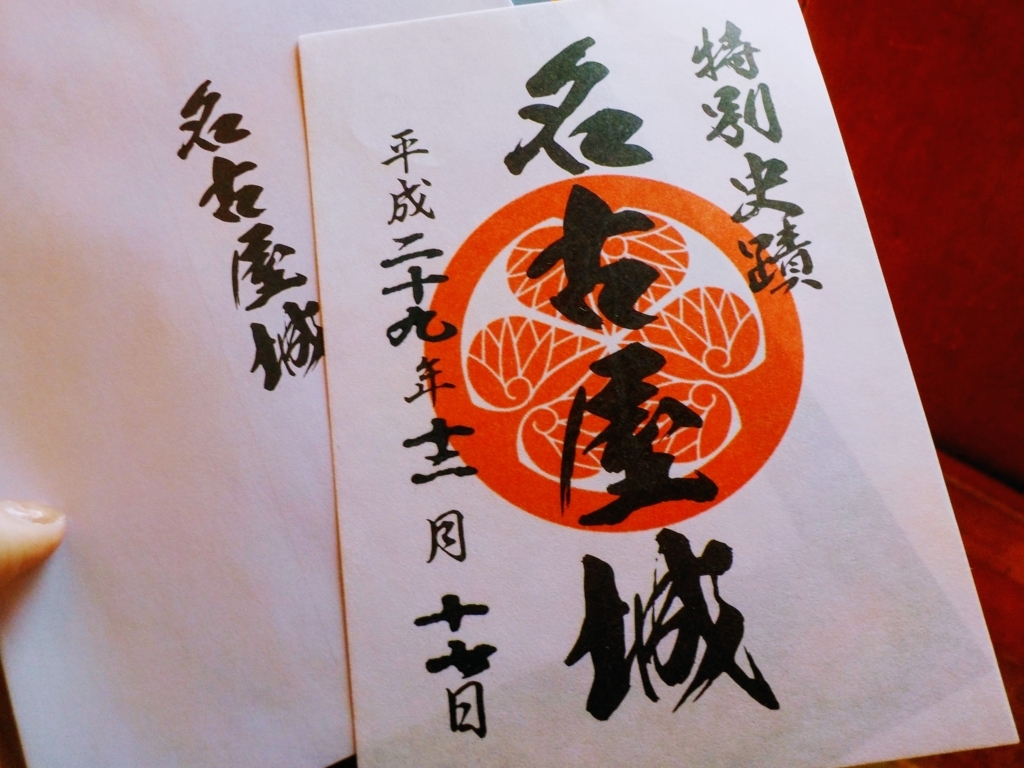 特別史蹟
名古屋城
平成二十九年十二月十七日
名古屋城